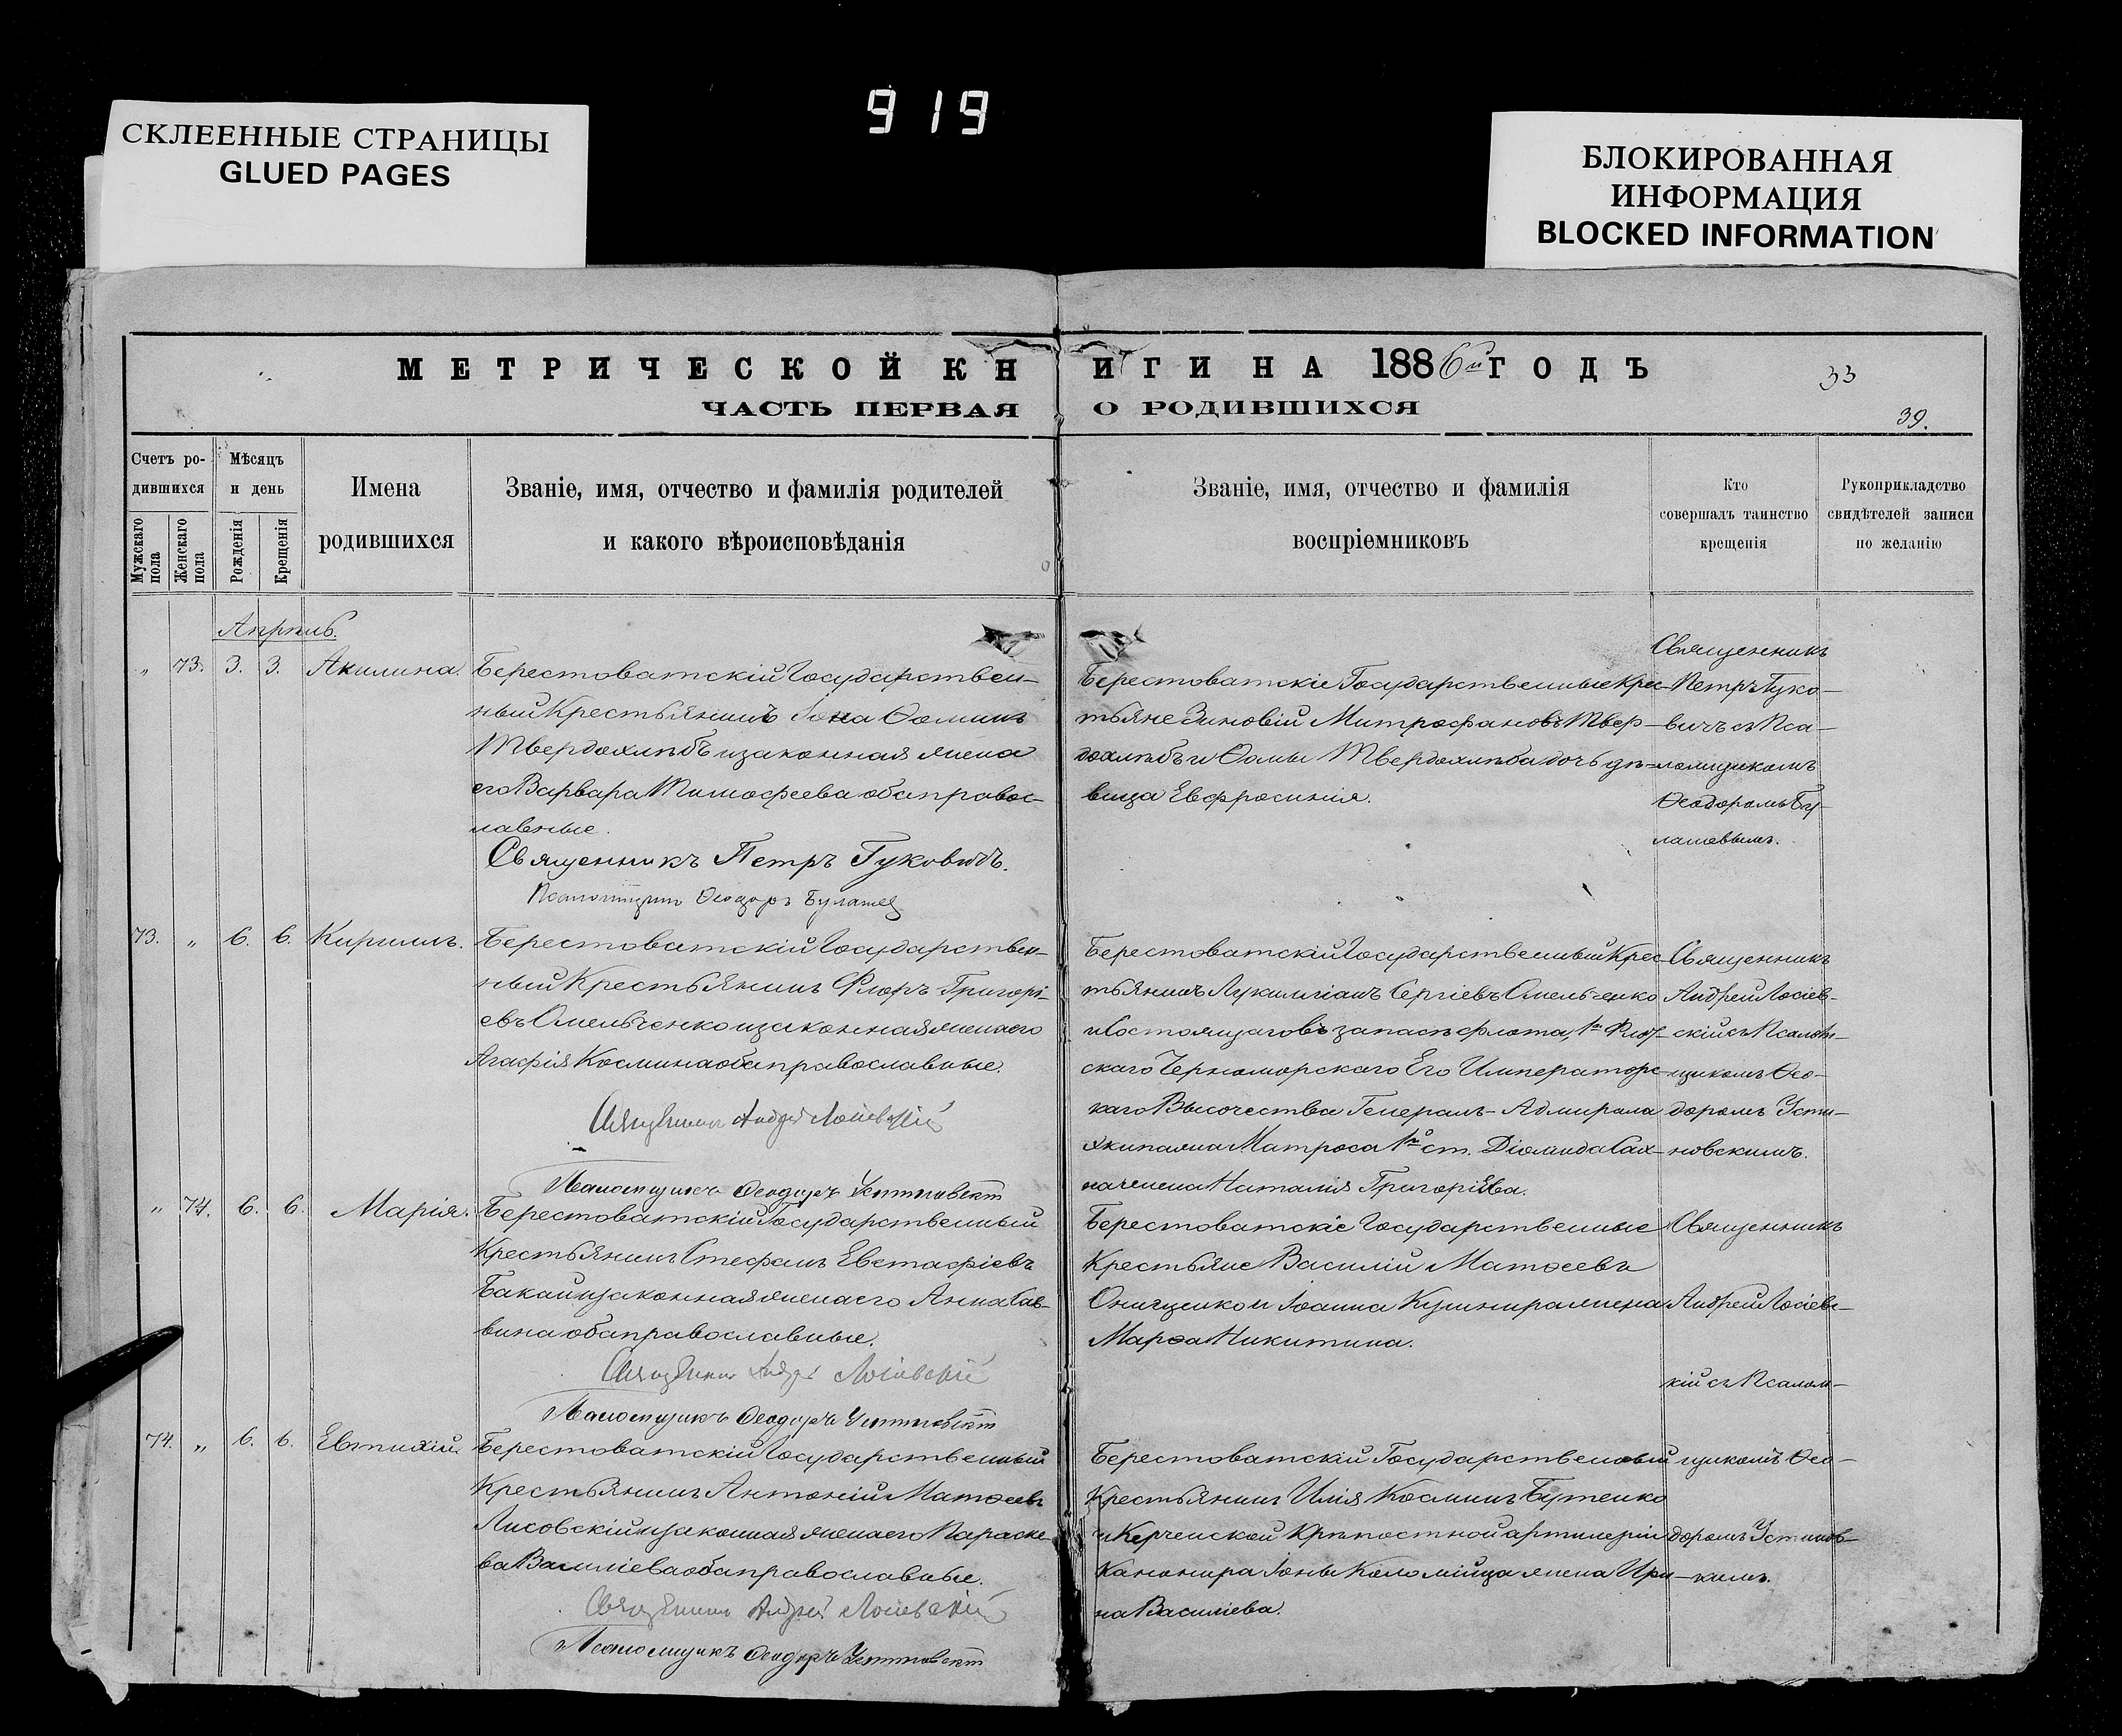 919
СКЛЕЕННЫЕ СТРАНИЦЫ
GLUED PAGES
БЛОКИРОВАННАЯ
ИНФОРМАЦИЯ
BLOCKED INFORMATION
МЕТРИЧЕСКОЙ КНИГИ НА 1886й ГОДЪ
33
ЧАСТЬ ПЕРВАЯ О РОДИВШИХСЯ
39.
Счетъ ро-
дившихся
Мужскаго пола
Женскаго пола
Мѣсяцъ
и день
Рожденія
Крещенія
Имена
родившихся
Званіе, имя, отчество и фамилія родителей
и какого вѣроисповѣданія
Званіе, имя, отчество и фамилія
воспріемниковъ
Кто
совершалъ таинство
крещенія
Рукоприкладство
свидѣтелей записи
по желанію
Апрѣль.
" 73. 3. 3. Акилина.
Берестоватскій Государствен-
ный Крестьянинъ Іона Ѳоминъ
Твердохлѣбъ и законная жена
его Варвара Тимофеева оба правос-
лавные.
Священникъ Петръ Гуковичъ.
Псаломщикъ Ѳеодоръ Булашев
Берестоватскіе Государственные Крес-
тьяне Зиновій Митрофановъ Твер-
дохлѣбъ и Ѳомы Твердохлѣба дочь дѣ-
вица Евфросинія.
Священникъ
Петръ Гуко-
вичъ съ Пса-
ломщикомъ
Ѳеодоромъ Бу-
лашевымъ.
73. " 6. 6. Кириллъ.
Берестоватскій Государствен-
ный Крестьянинъ Флоръ Григорі-
евъ Омельченко и законная жена его
Агафія Космина оба православные.
Священникъ Андрей Лосіевскій
Псаломщикъ Ѳеодоръ Устиновскій
Берестоватскій Государственный Крес-
тьянинъ Лукилліанъ Сергіевъ Омельченко
и Состоящаго въ запасѣ флота, 1го Флот-
скаго Черноморскаго Его Императорс-
каго Высочества Генералъ-Адмирала
экипажа Матроса 1й ст. Діомида Сах-
на жена Наталія Григоріева.
Священникъ
Андрей Лосіев-
скій съ Псалом-
щикомъ Ѳео-
доромъ Усти-
новскимъ.
" 74. 6. 6. Марія.
Берестоватскій Государственный
Крестьянинъ Стефанъ Евстафіевъ
Бакай и законная жена его Анна Сав-
вина оба православные.
Священникъ Андрей Лосіевскій
Псаломщикъ Ѳеодоръ Устиновскій
Берестоватскіе Государственные
Крестьяне Василій Матѳеевъ
Онищенко и Іоанна Кушнира жена
Марѳа Никитина.
Священникъ
Андрей Лосіевс-
кій съ Псалом-
74. " 6. 6. Евтихій.
Берестоватскій Государственный
Крестьянинъ Антоній Матѳеевъ
Лисовскій и законная жена его Параске-
ва Василіева оба православные.
Священникъ Андрей Лосіевскій
Псаломщикъ Ѳеодоръ Устиновскій
Берестоватскій Государственный
Крестьянинъ Илія Косминъ Бутенко
и Керченской Крѣпостной артилеріи
Канонира Іоны Коломійца жена Ири-
на Василіева.
щикомъ Ѳео-
доромъ Устинов-
кимъ.